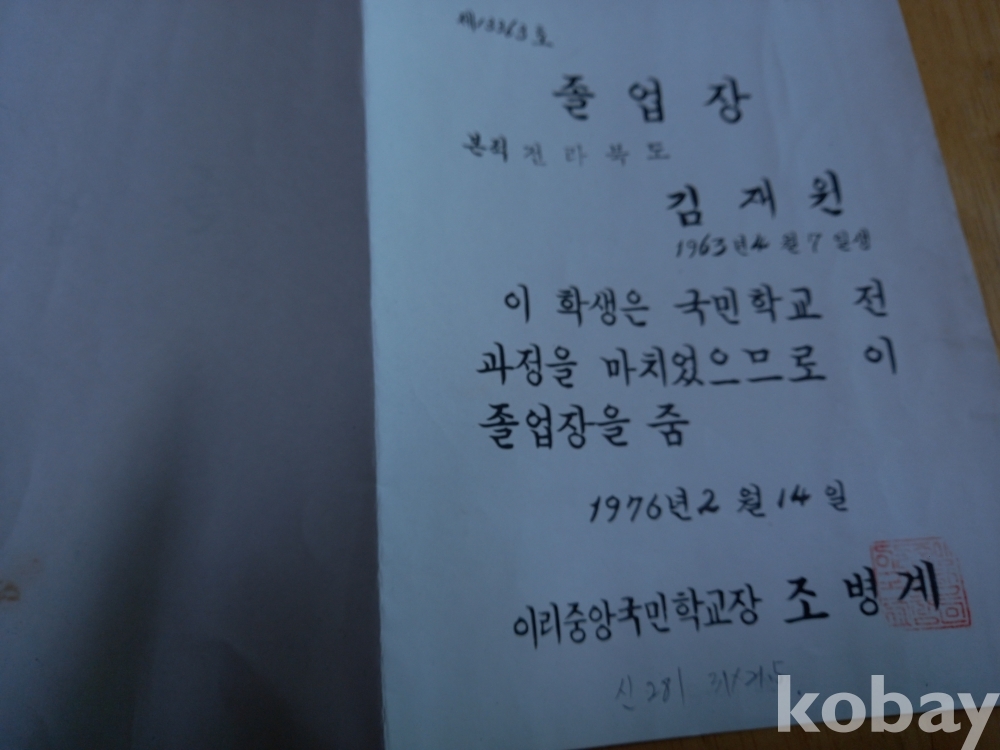 제13363호
졸업장
본적 전라북도
김재원
1963년 4월 7일생
이 학생은 국민학교 전
과정을 마치었으므로 이
졸업장을 줌
1976년 2월 14일
이리중앙국민학교장 조병계
kobay